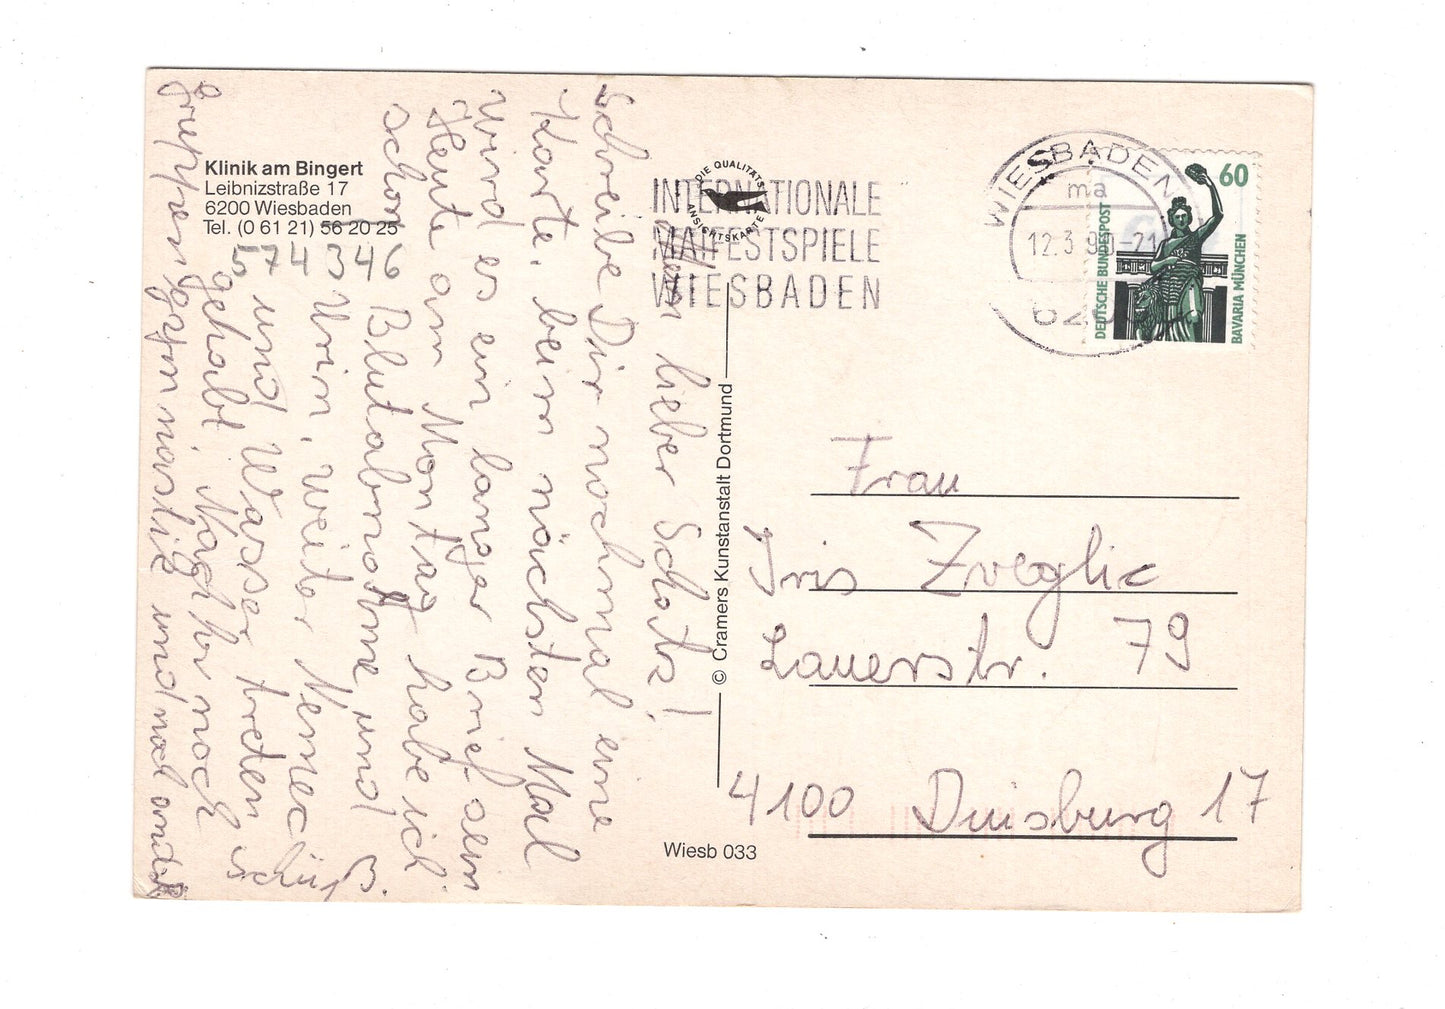 Klinik am Bingert
Leibnizstraße 17
6200 Wiesbaden
Tel. (0 61 21) 56 20 25
574346
DIE QUALITÄTS
ANSICHTSKARTE
INTERNATIONALE
MAIFESTSPIELE
WIESBADEN
WIESBADEN
ma
12.3.90-21
620
60
DEUTSCHE BUNDESPOST
BAVARIA MÜNCHEN
lieber Schatz!
Schreibe Dir nochmal eine
Karte, beim nächsten Mal
wird es ein langer Brief sein
Heute am Montag habe ich
schon Blutabnahme und
Urin, weiter
und Wasser treten
gehabt. Nachher noch
Gruppengymnastik und
© Cramers Kunstanstalt Dortmund
Wiesb 033
Frau
Iris Zveglic
Lauerstr. 79
4100 Duisburg 17